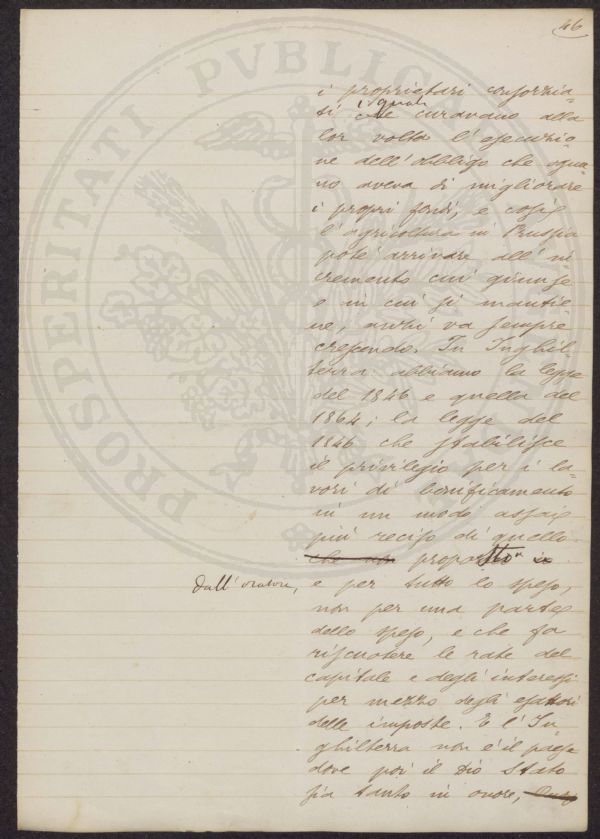 46
i proprietari consorzia-
ti i quali curavano alla
lor volta l'esecuzio
ne dell'obbligo che ognu
no aveva di migliorare
i propri fondi, e così
l'agricoltura in Prussia
poté arrivare all'in
cremento cui giunse
e in cui si mantie
ne, anzi va sempre
crescendo. In Inghil
terra abbiamo la legge
del 1846 e quella del
1864; la legge del
1846 che stabilisce
il privilegio per i la-
vori di bonificamento
in un modo assai
più reciso di quello
che non proposto
dall'oratore, e per tutte le spese,
non per una parte
delle spese, e che fa
riscuotere le rate del
capitale e degli interessi
per mezzo degli esattori
delle imposte. E l'In
ghilterra non è il paese
dove poi il Dio Stato
sia tanto in onore,
PROSPERITATI PVBLICAE